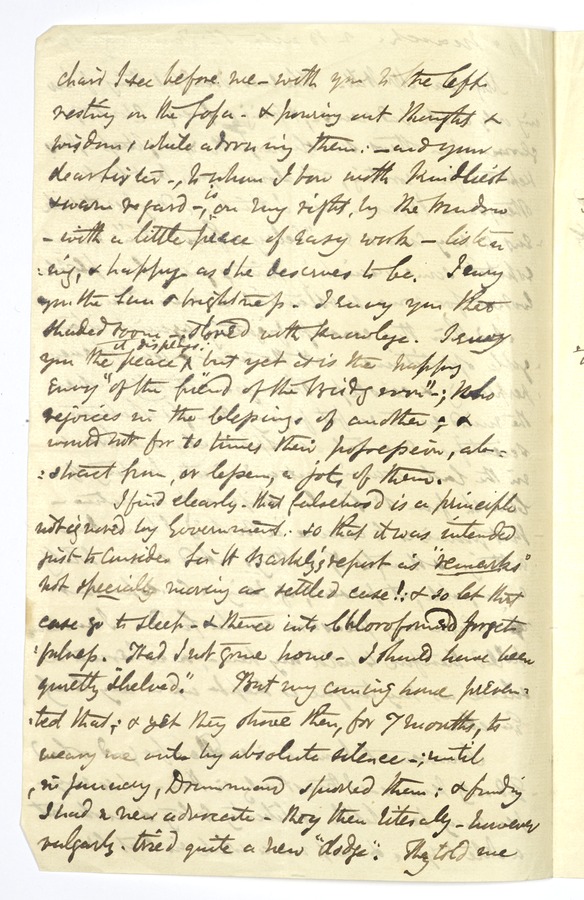 chair I see before me - with you to the left
resting on the sofa - & pouring out thought &
wisdom, while adorning them: - and your
dear Sister -, to whom I bow with kindliest
& warm regard -, is on my right, by the window
- with a little piece of easy work - listen
:ing, & happy as she deserves to be. I envy
you the sun & brightness. I envy you that
shaded room - stored with knowlege. I envy
you the peace it dispells: but yet it is the happy
envy "of the friend of the Bridegroom"-; who
rejoices in the blessings of another; &
would not for 10 times their possession, ab=
:stract from, or lessen, a jot, of them.
I find clearly - that falsehood is a principle
not ignored by Government: so that it was intended
just to consider Sir H Barkly's report as "remarks"
not specially moving a settled case!: & so let that
case go to sleep - & thence into Chloroformed forget
:fulness. Had I not gone home - I should have been
quietly "shelved." But my coming home preven=
:ted that; & yet they strove then, for 7 months, to
weary me out by absolute silence -; until
, in January, Drummond spurred them: & finding
I had a new advocate - they then literally - however
vulgarly - tried quite a new "dodge". They told me